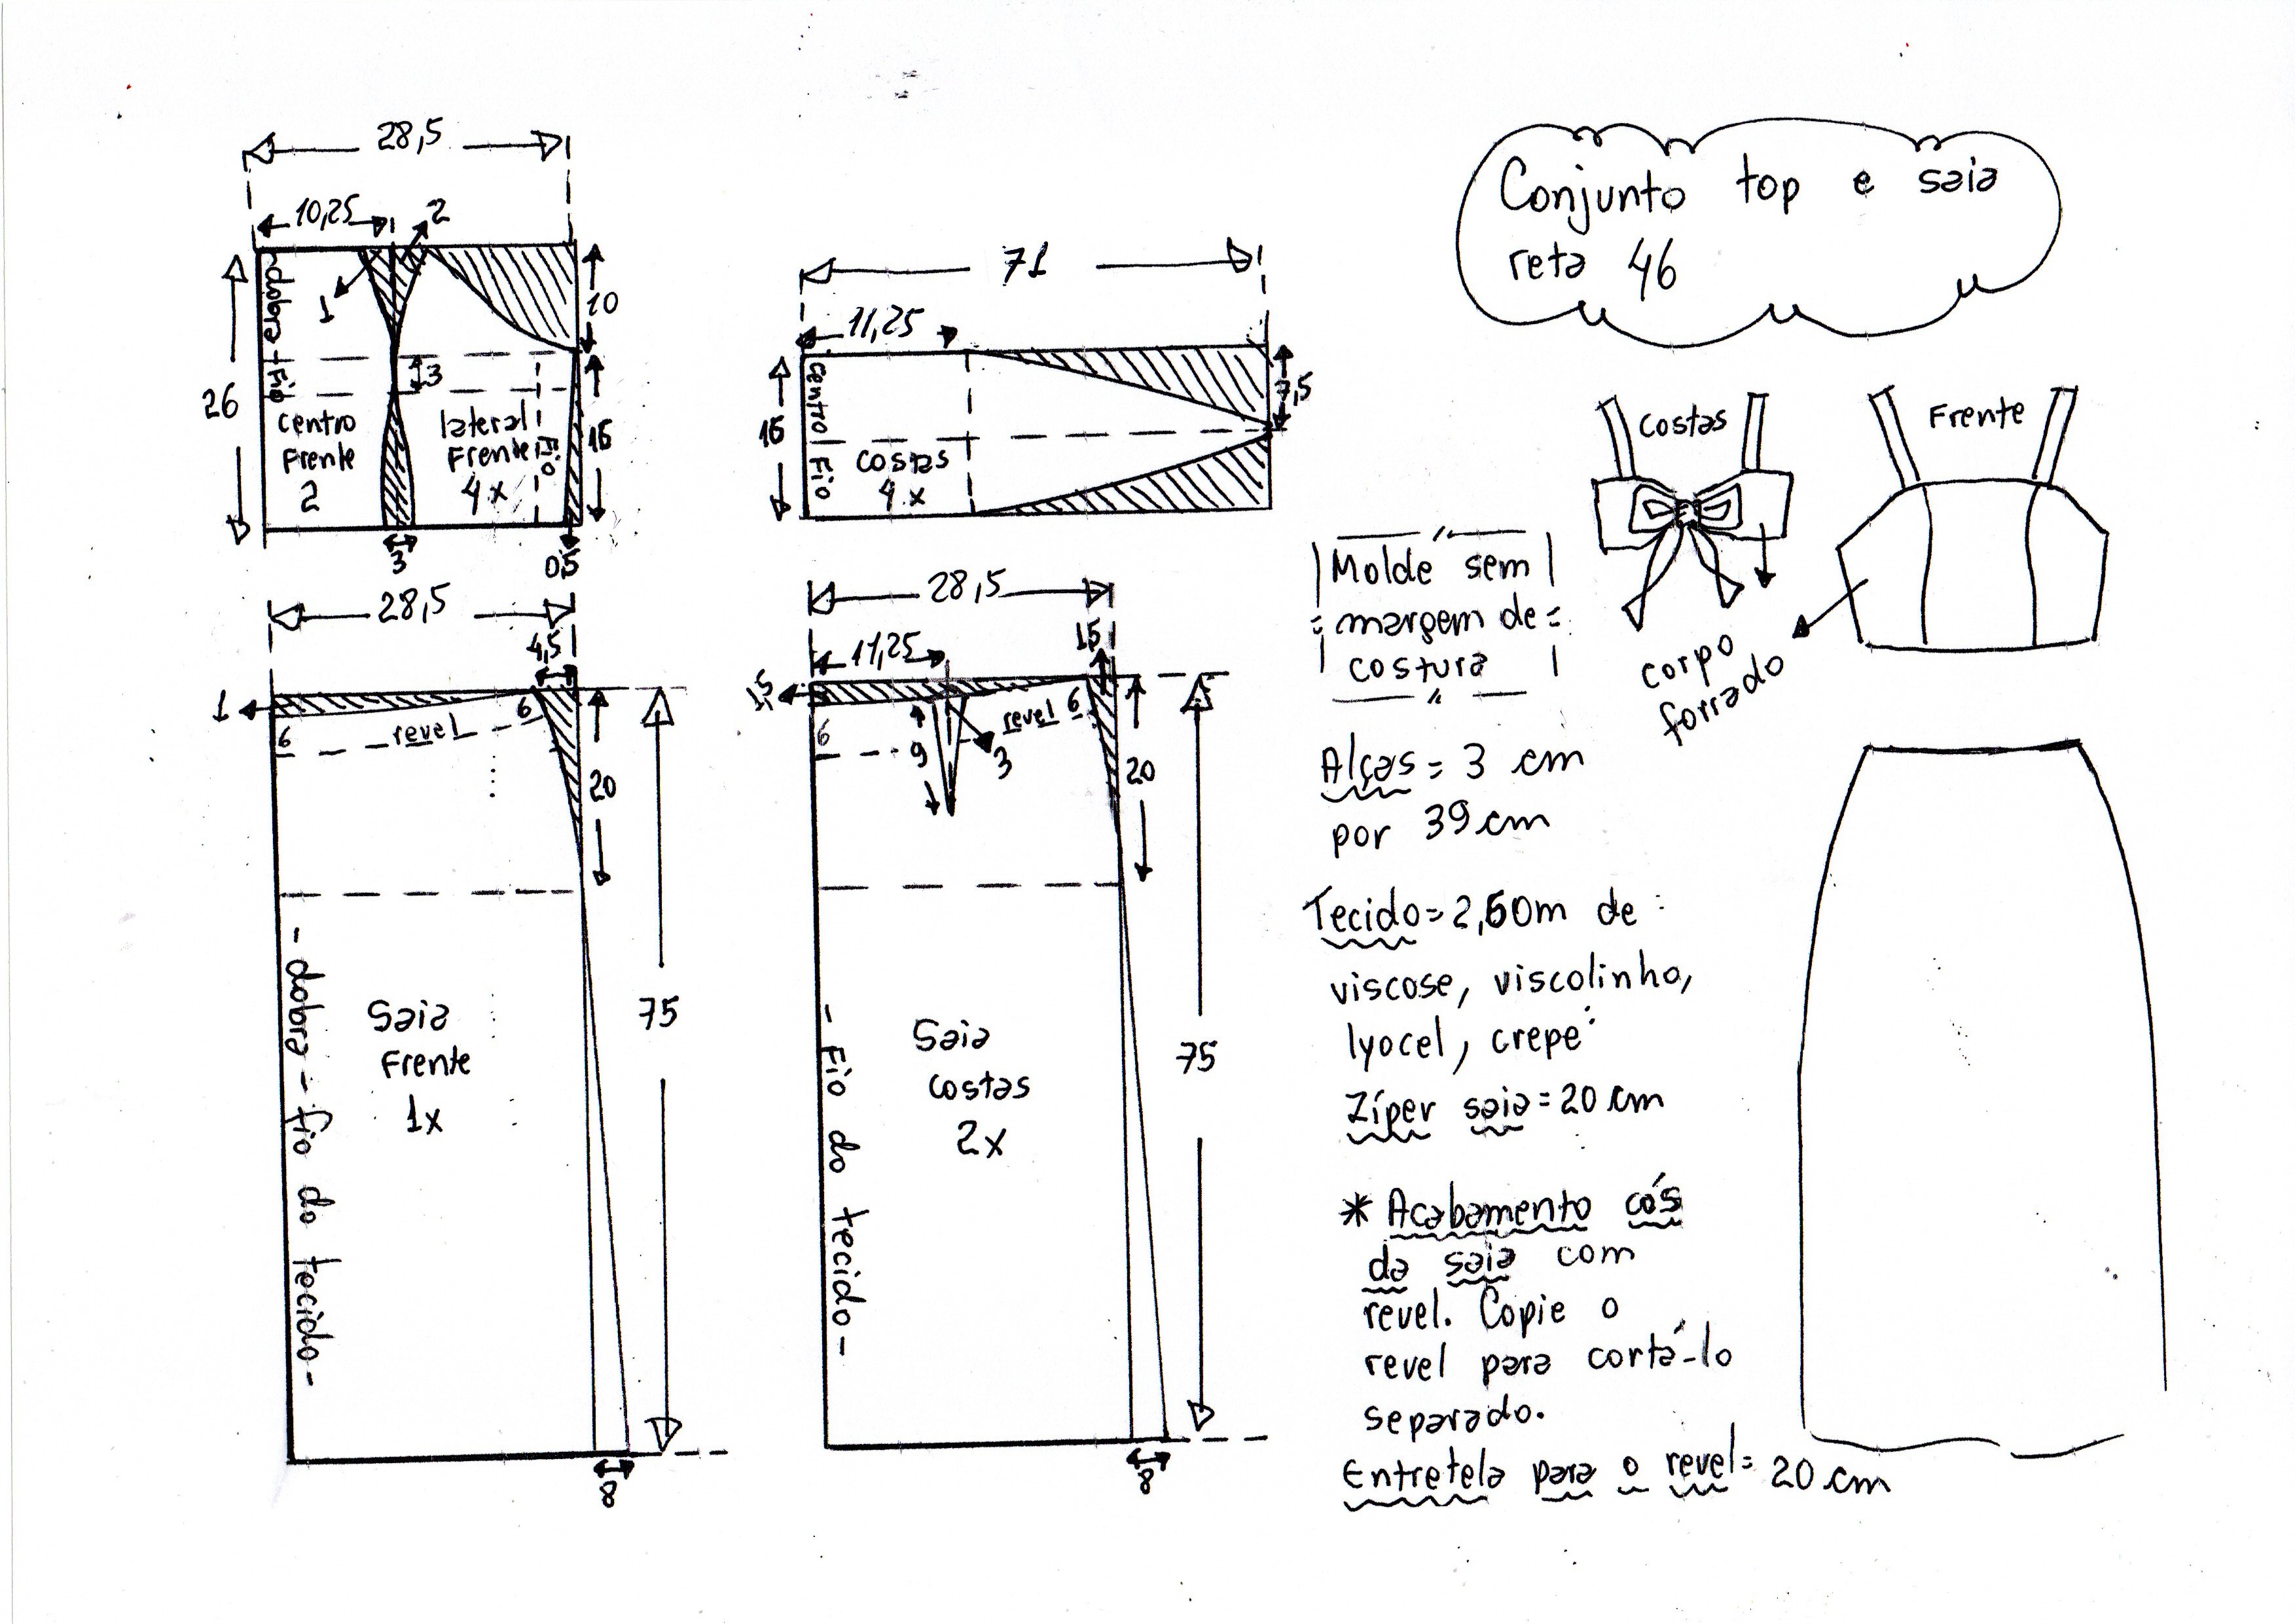 Conjunto top e saia
reta 46
28,5
10,25
2
1
dobra - fio
10
3
26
centro
Frente
2
lateral
Frente
4x
Fio
16
3
0,5
71
11,25
7,5
16
centro Fio
costas
4x
Costas
Frente
corpo
forrado
Molde sem
margem de
costura
Alças = 3 cm
por 39 cm
Tecido = 2,60m de
viscose, viscolinho,
lyocel, crepe
Zíper saia = 20 cm
* Acabamento cós
da saia com
revel. Copie o
revel para cortá-lo
separado.
Entretela para o revel = 20 cm
28,5
4,5
1
6
revel
6
20
75
- dobra - fio do tecido -
Saia
Frente
1x
8
28,5
11,25
1,5
1,5
6
9
3
revel 6
20
75
- Fio do tecido -
Saia
costas
2x
8